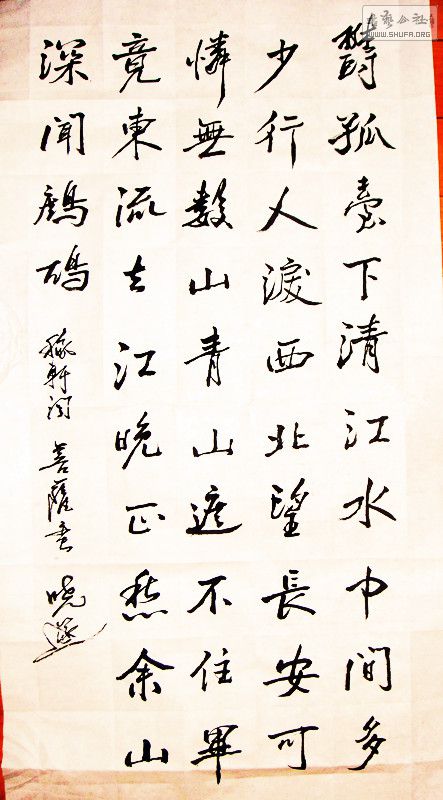 鬱孤臺下清江水中間多
少行人淚西北望長安可
憐無數山青山遮不住畢
竟東流去江晚正愁余山
深聞鷓鴣
稼軒詞菩薩蛮
藝公社
WWW.SHUFA.ORG